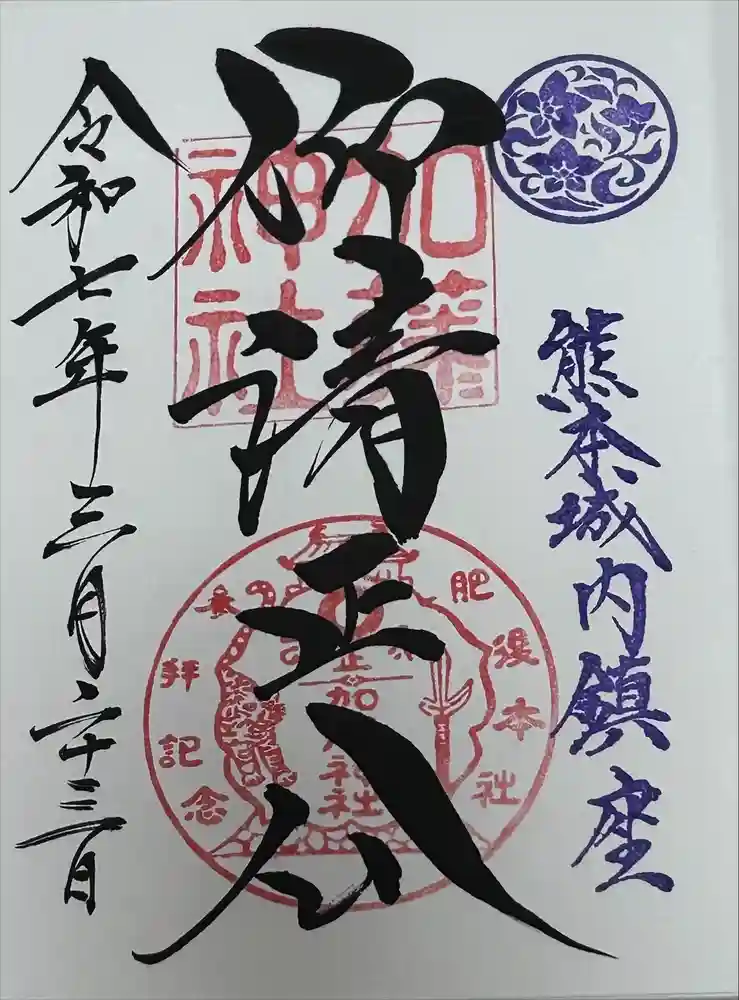 熊本城内鎮座
仰清正公
加藤
神社
肥後本社
加藤神社
参拝記念
令和七年三月二十三日